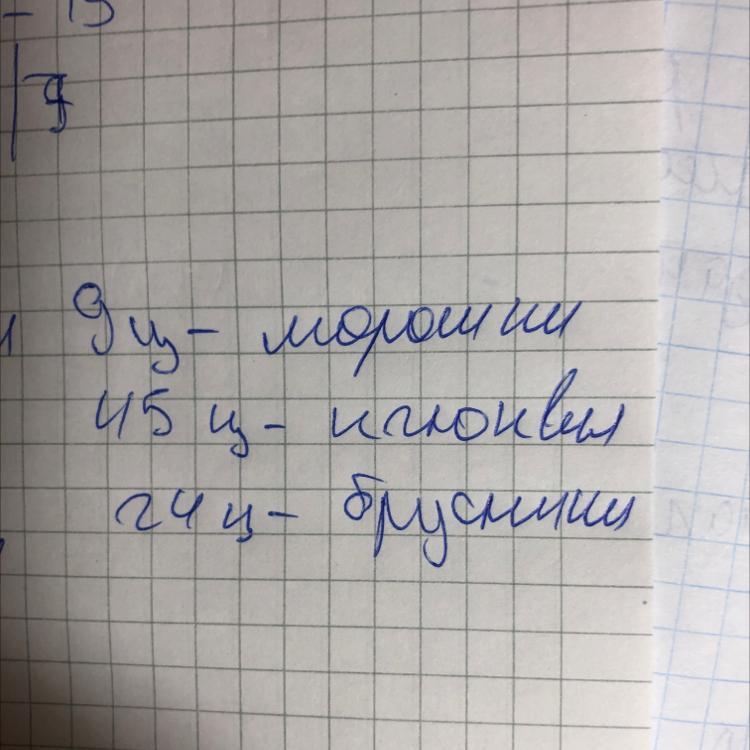 - 15
9 ц - морошки
45 ц - клюквы
24 ц - брусники